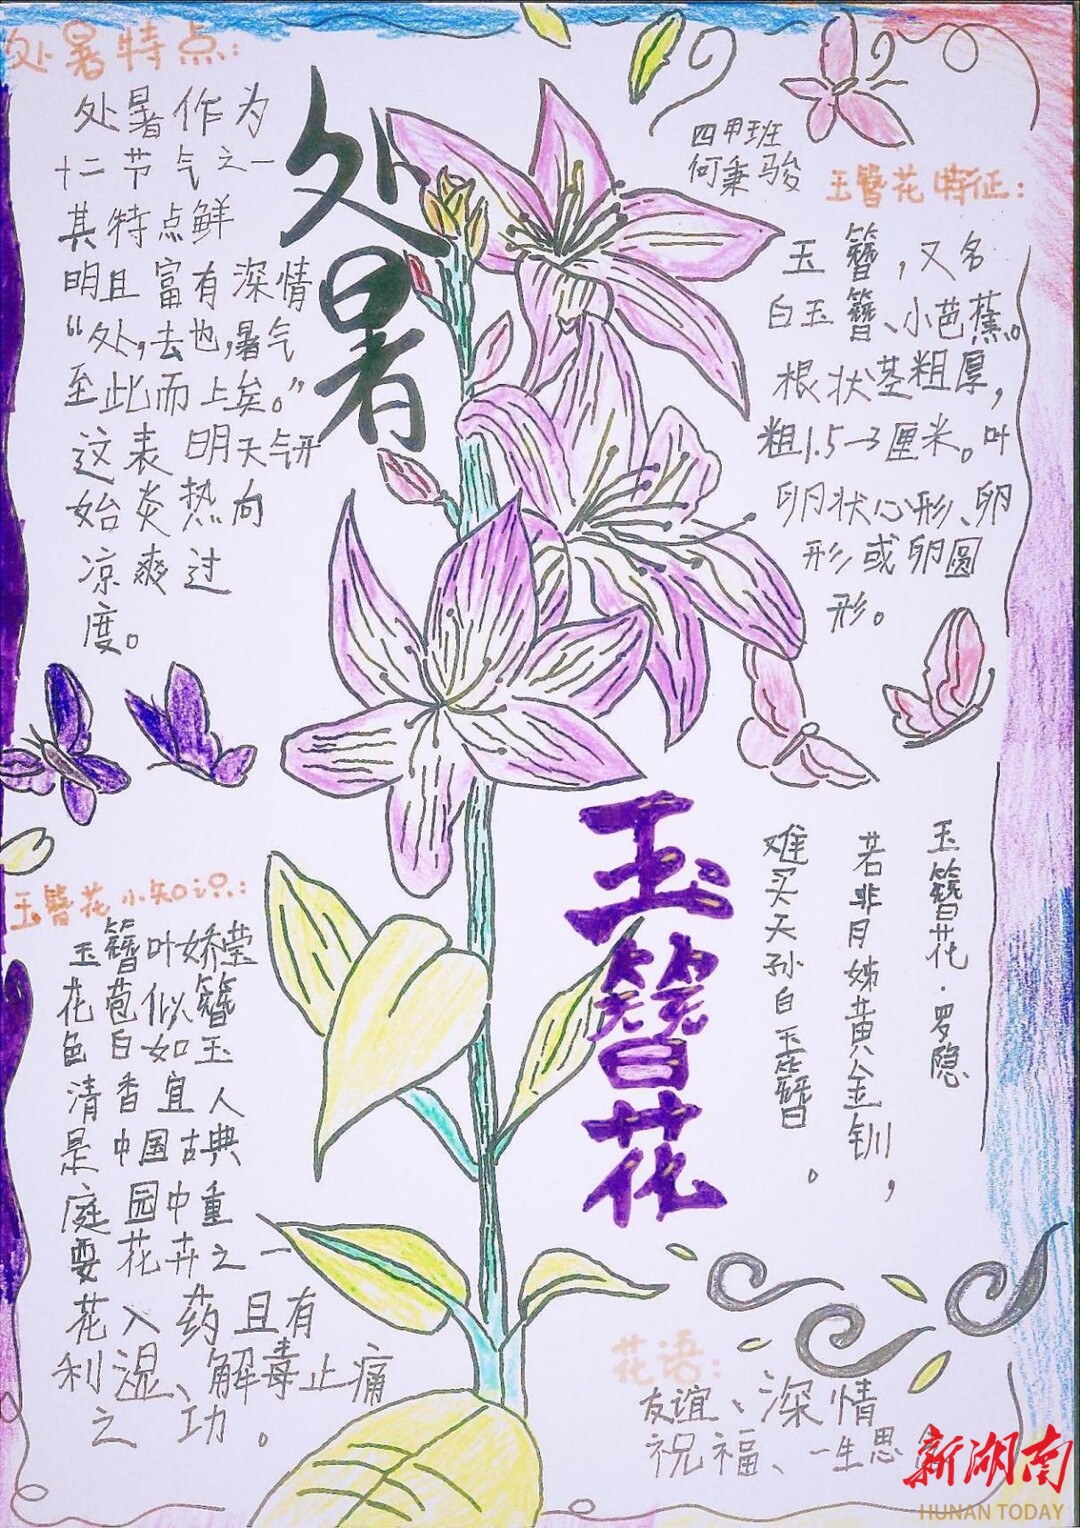 处暑特点：
处暑作为
十二节气之一
其特点鲜
明且富有深情
“处，去也，暑气
至此而上矣。”
这表明天气开
始炎热向
凉爽过
度。
处暑
四甲班
何秉骏
玉簪花特征：
玉簪，又名
白玉簪、小芭蕉。
根状茎粗厚，
粗1.5—3厘米。叶
卵状心形、卵
形或卵圆
形。
玉簪花·罗隐
若非月姊黄金钏，
难买天孙白玉簪。
玉簪花
玉簪花小知识：
玉簪叶娇莹
花苞似簪
色白如玉
清香宜人
是中国古典
庭园中重
要花卉之一
花入药且有
利湿、解毒止痛
之功。
花语：
友谊、深情
祝福、一生思
新湖南
HUNAN TODAY